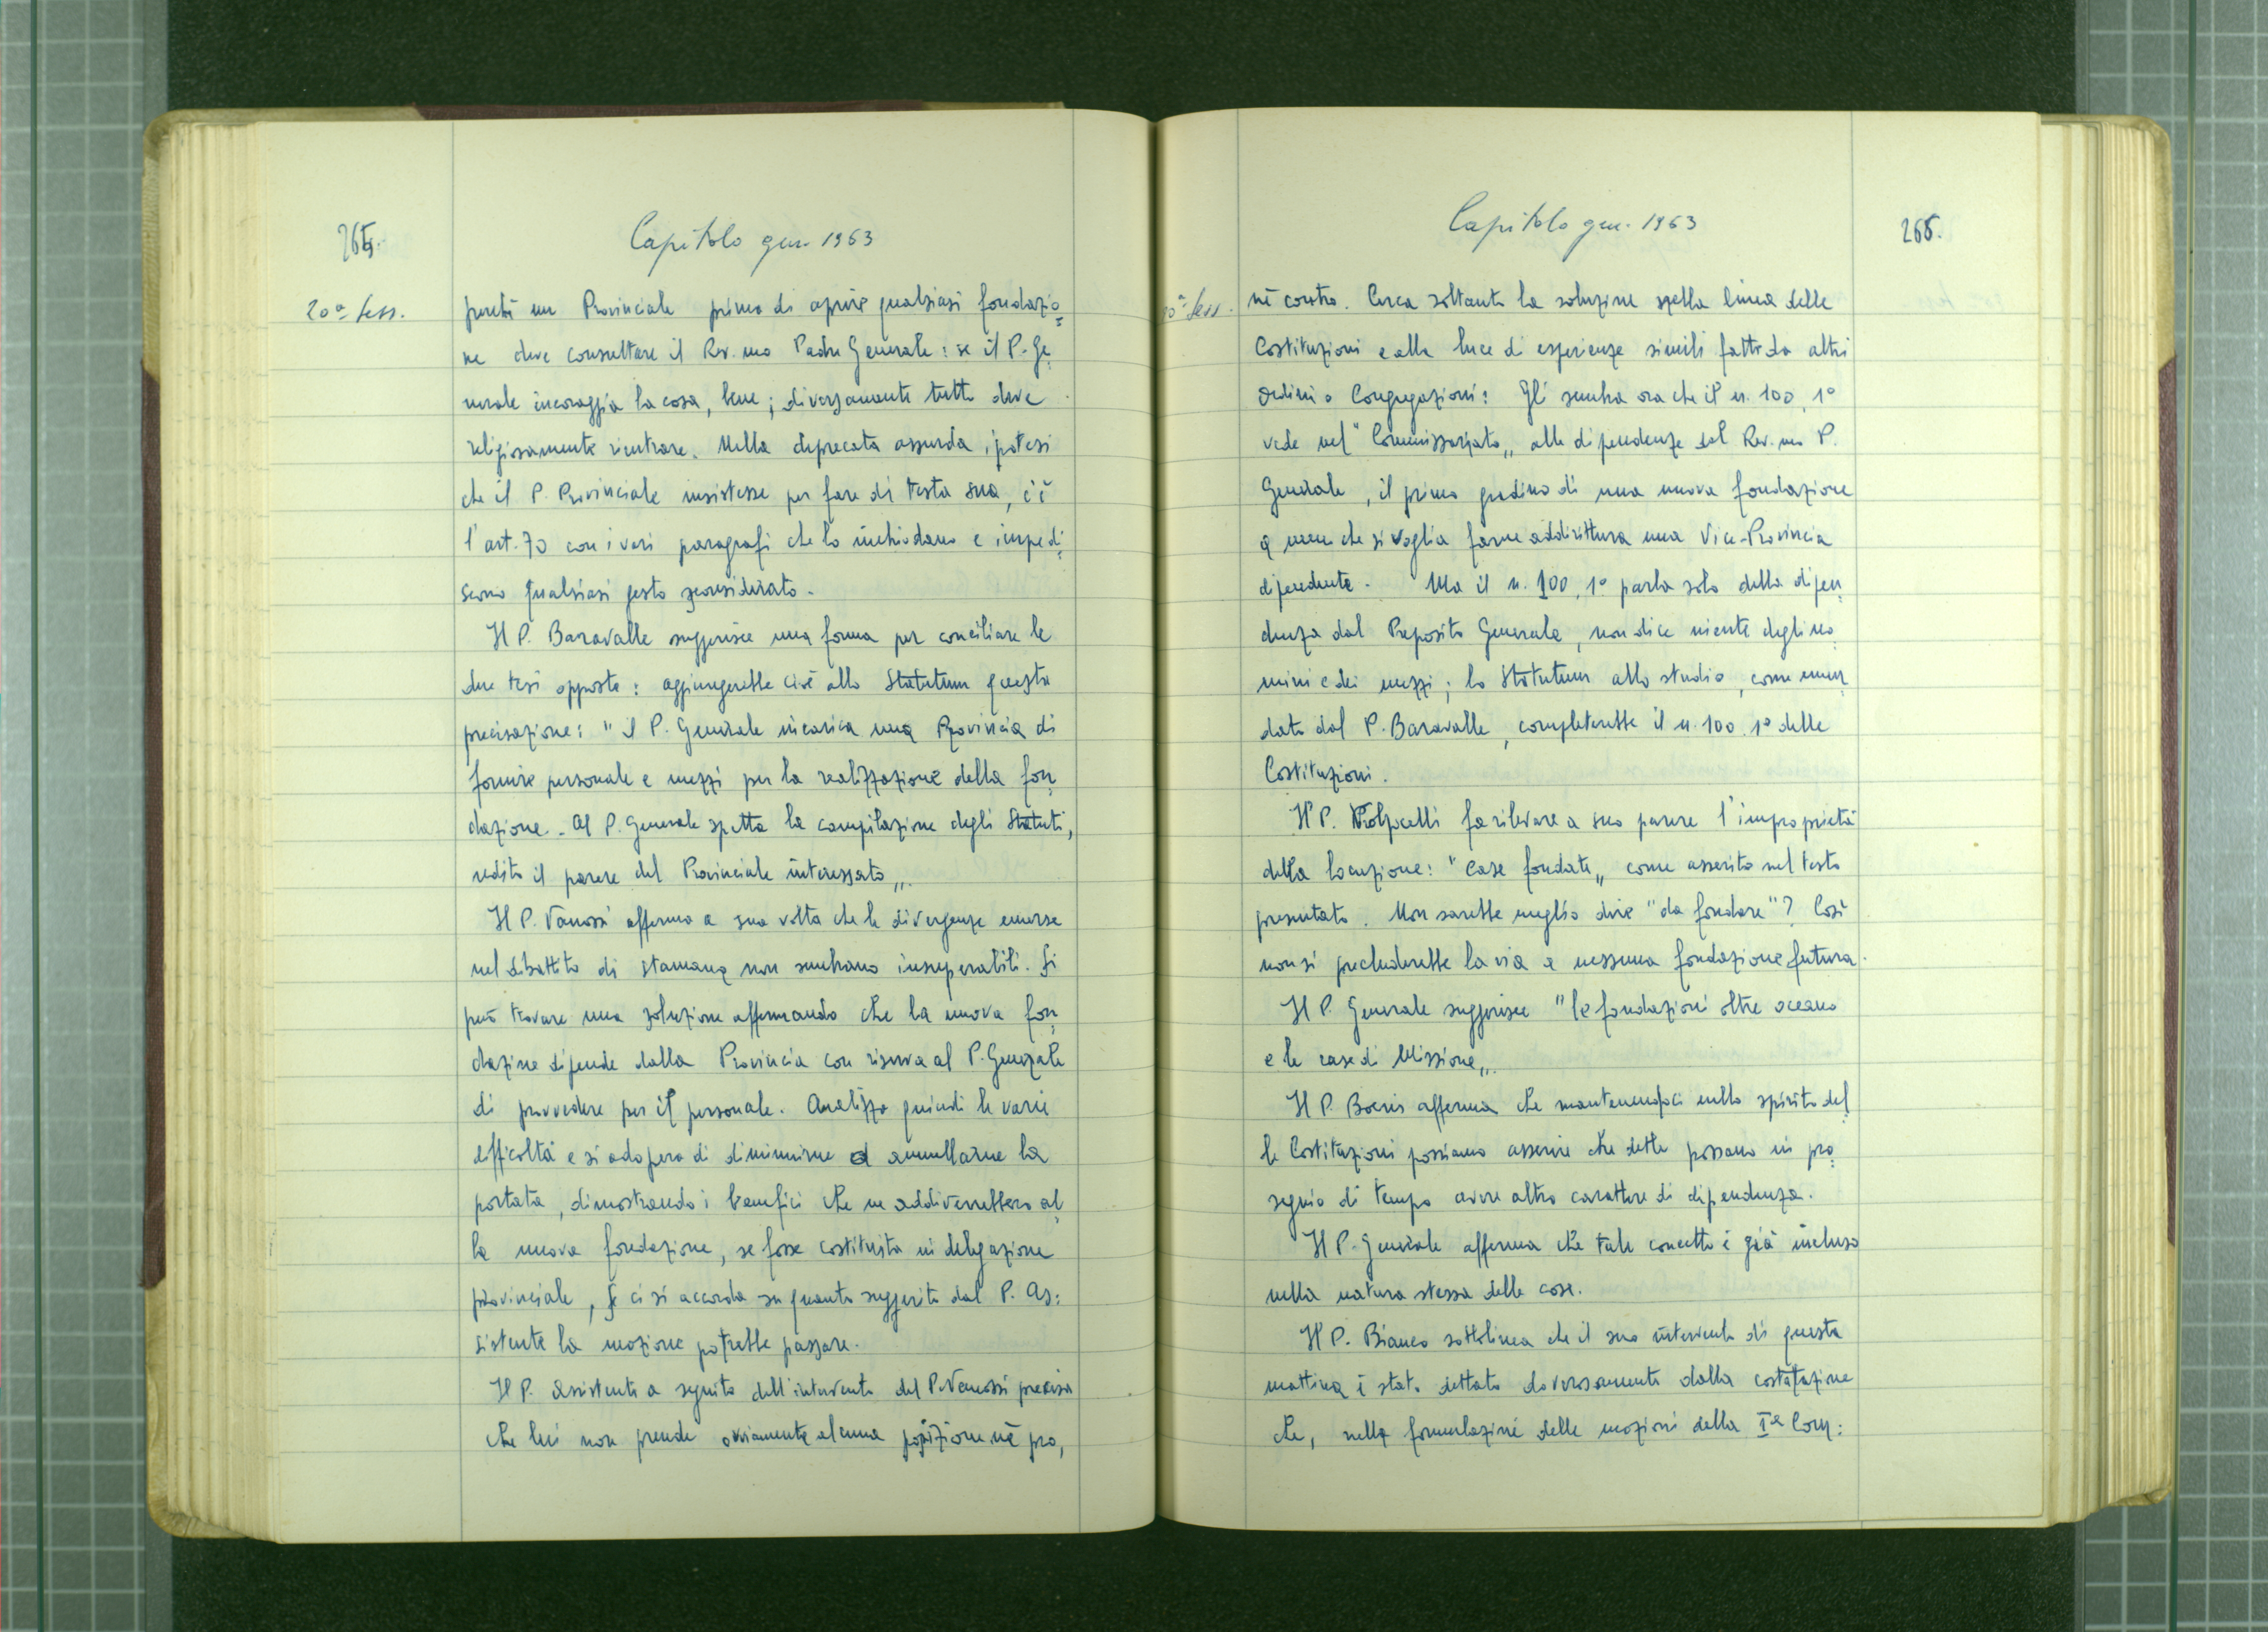 265.
Capitolo gen. 1963
20ª sess.
perché un Provinciale prima di aprire qualsiasi fondazio=
ne deve consultare il Rev.mo Padre Generale: se il P. Ge=
nerale incoraggia la cosa, bene; diversamente tutto deve
religiosamente rientrare. Nella deprecata assurda ipotesi
che il P. Provinciale insistesse per fare di testa sua, c'è
l'art. 70 con i vari paragrafi che lo inchiodano e impedi=
scono qualsiasi gesto sconsiderato.
Il P. Baravalle suggerisce una forma per conciliare le
due tesi opposte: aggiungerebbe cioè allo Statutum questa
precisazione: "il P. Generale incarica una Provincia di
fornire personale e mezzi per la realizzazione della fon=
dazione. Al P. Generale spetta la compilazione degli Statuti,
udito il parere del Provinciale interessato„.
Il P. Vanossi afferma a sua volta che le divergenze emerse
nel dibattito di stamane non sembrano insuperabili. Si
può trovare una soluzione affermando che la nuova fon=
dazione dipende dalla Provincia con riserva al P. Generale
di provvedere per il personale. Analizza quindi le varie
difficoltà e si adopera di diminuirne ed annullarne la
portata, dimostrando i benefici che ne addiverrebbero al=
la nuova fondazione, se fosse costituita in delegazione
provinciale, se ci si accorda su quanto suggerito dal P. As=
sistente la mozione potrebbe passare.
Il P. Assistente a seguito dell'intervento del P. Vanossi precisa
che lui non prende ovviamente alcuna posizione, né pro,
Capitolo gen. 1963
266.
20ª sess.
né contro. Cerca soltanto la soluzione nella linea delle
Costituzioni e alla luce di esperienze simili fatte da altri
Ordini o Congregazioni: Gli sembra ora che il n. 100, 1°
vede nel "Commissariato„ alle dipendenze del Rev.mo P.
Generale, il primo gradino di una nuova fondazione
a meno che si voglia farne addirittura una Vice-Provincia
dipendente. Ma il n. 100, 1° parla solo della dipen=
denza dal Preposito Generale, non dice niente degli uo=
mini e dei mezzi; lo Statutum allo studio, come emen=
dato dal P. Baravalle, completerebbe il n. 100, 1° delle
Costituzioni.
Il P. Volpicelli fa rilevare a suo parere l'improprietà
della locuzione: "Case fondate„ come asserito nel testo
presentato. Non sarebbe meglio dire "da fondare"? Così
non si precluderebbe la via a nessuna fondazione futura.
Il P. Generale suggerisce "le fondazioni oltre oceano
e le case di Missione„.
Il P. Boeris afferma che mantenendoci nello spirito del=
le Costituzioni possiamo asserire che dette possano in pro=
sieguo di tempo avere altro carattere di dipendenza.
Il P. Generale afferma che tale concetto è già incluso
nella natura stessa delle cose.
Il P. Bianco sottolinea che il suo intervento di questa
mattina è stato dettato doverosamente dalla costatazione
che, nella formulazione delle mozioni della Iª Com=